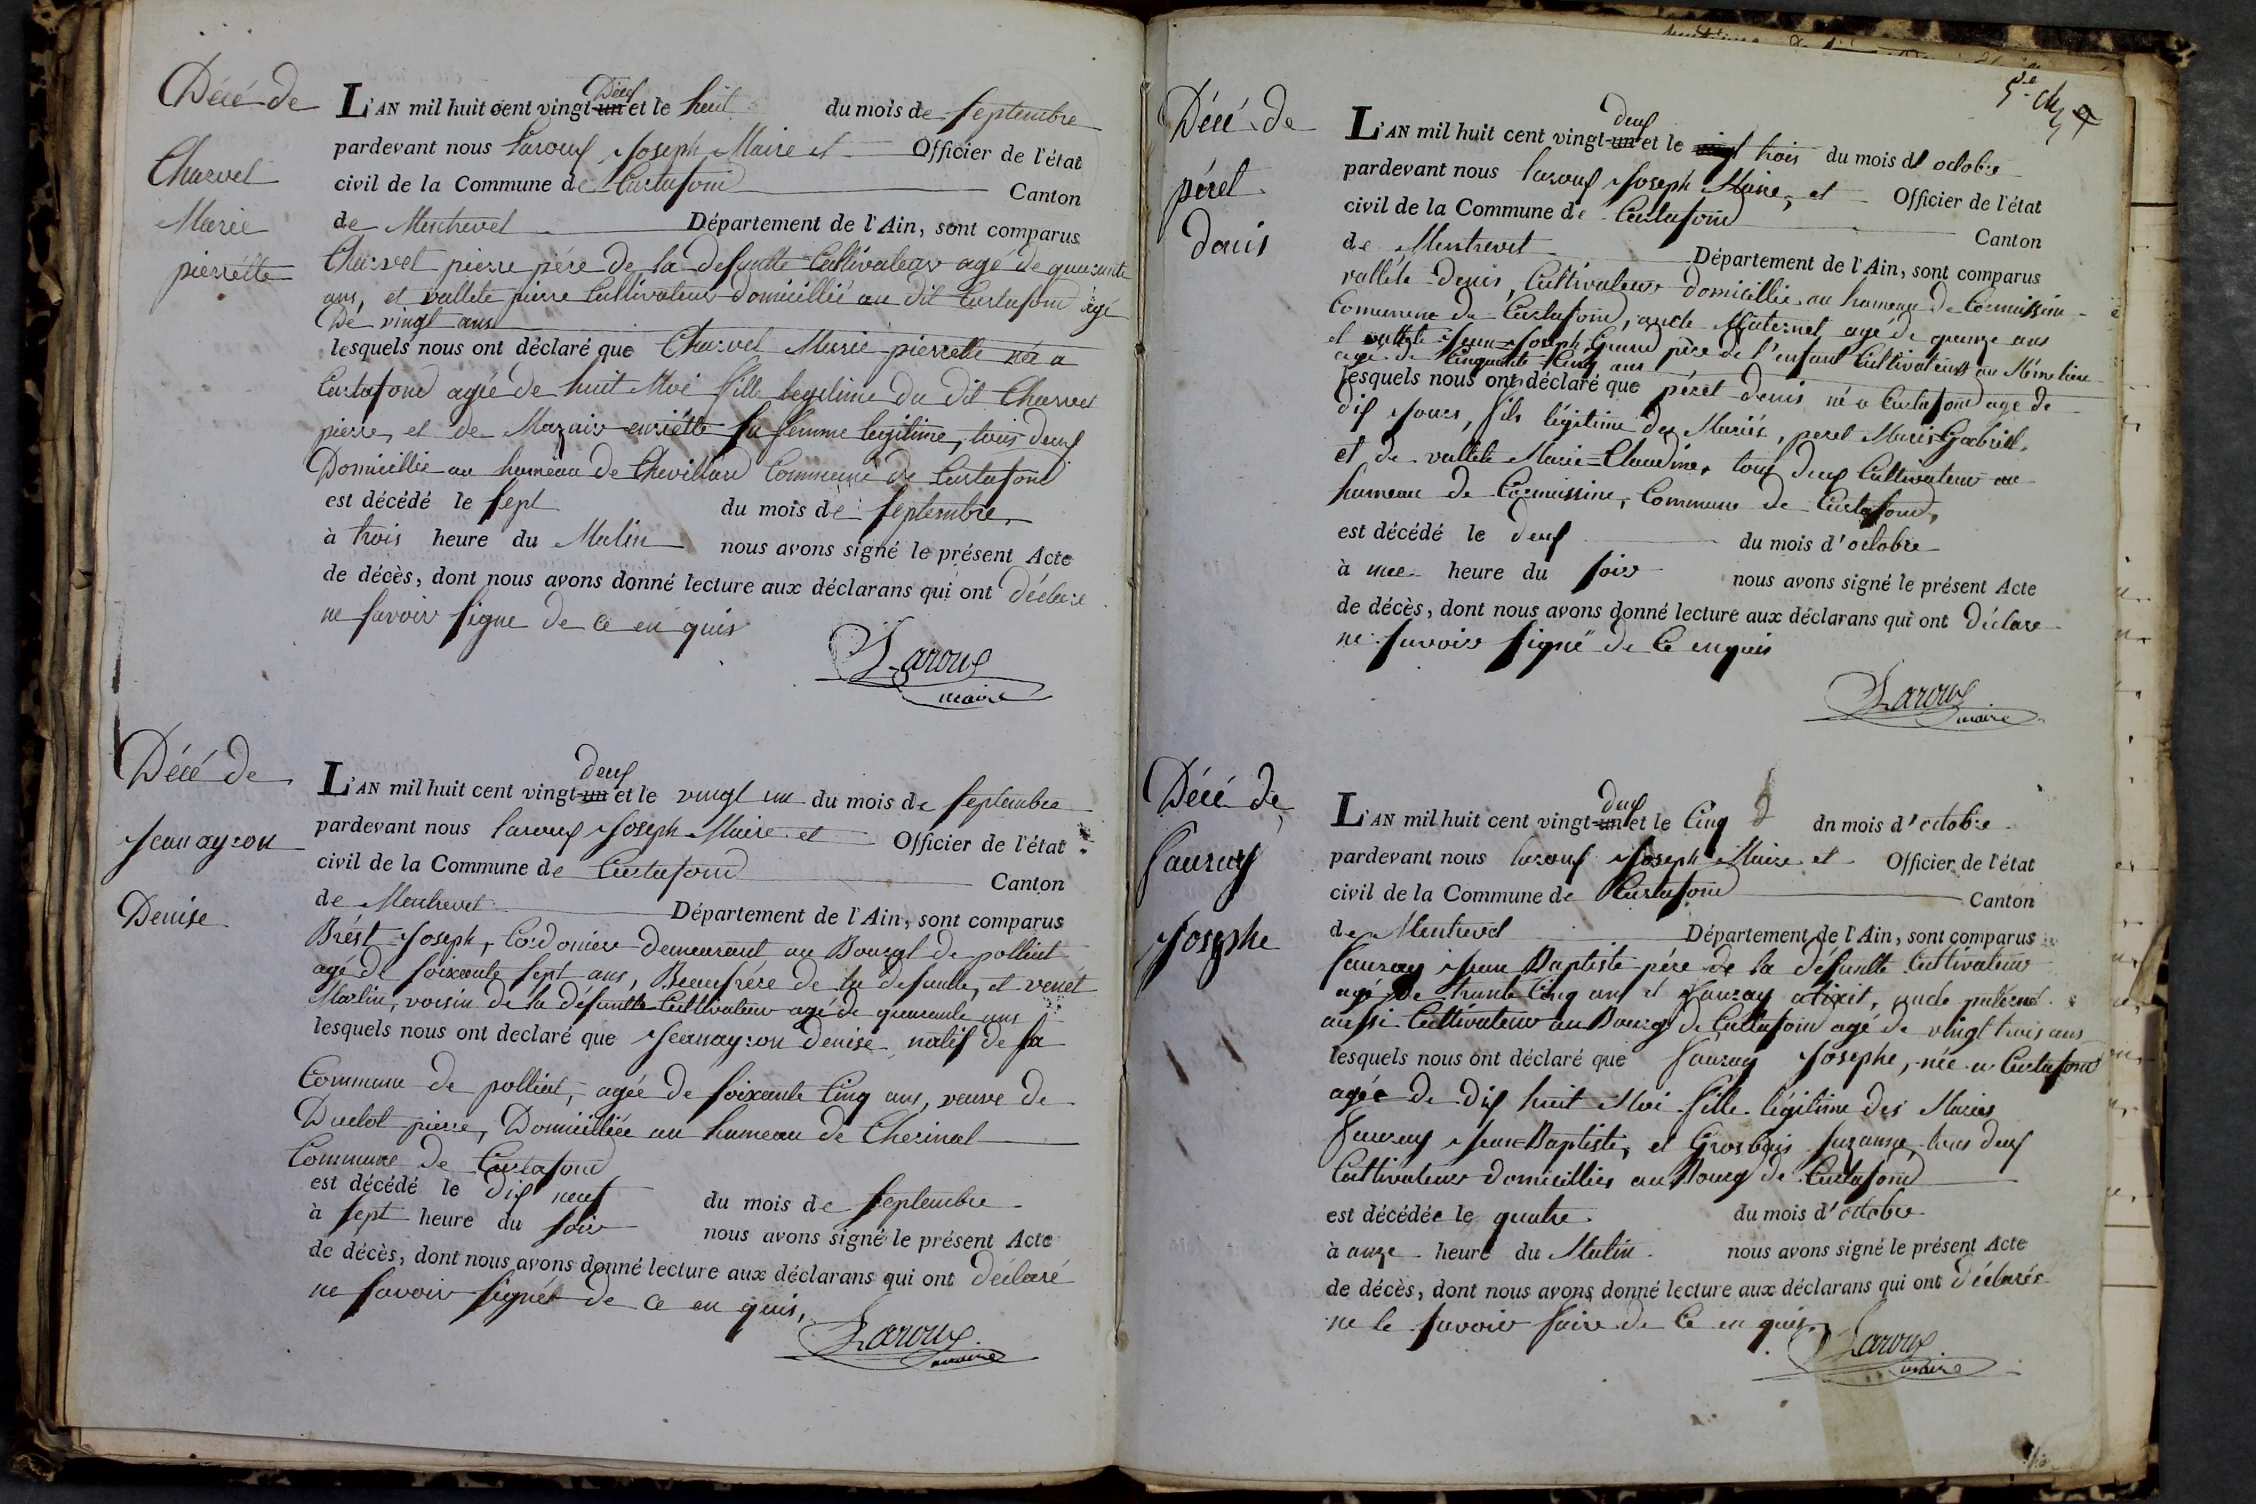 Décé de
Charvet
Marie
pierrétte
L'AN mil huit cent vingt-un Deux et le huit du mois de septembre
pardevant nous Laroux Joseph Maire et Officier de l'état
civil de la Commune de Curtafond Canton
de Montrevel Département de l'Ain, sont comparus
Charvet pierre père de la defunte Cultivateur agé de quarante
ans, et vallete pierre Cultivateur domicillié au dit Curtafond agé
Dé vingt ans
lesquels nous ont déclaré que Charvet Marie pierrette née a
Curtafond agée de huit Moi fille legitime du dit Charvet
pierre, et de Mazair enriétte sa femme legitime, tous deux
Domicillié au hameau de Chevilland Commune de Curtafond
est décédé le sept du mois de septembre
à trois heure du Matin nous avons signé le présent Acte
de décès, dont nous avons donné lecture aux déclarans qui ont déclaré
ne savoir signe de ce en quis
Laroux
maire
Décé de
Jeanayron
Denise
L'AN mil huit cent vingt-un deux et le vingt un du mois de septembre
pardevant nous laroux Joseph Maire et Officier de l'état
civil de la Commune de Curtafond Canton
de Montrevel Département de l'Ain, sont comparus
Brést Joseph, Cordonier demeurant au Bourgt de polliat
agé de soixante sept ans, Beaufrére de la defunte, et venét
Martin, voisin de la défunte Cultivateur agé de quarante ans
lesquels nous ont declaré que Jeanayron denise natif de la
Commune de polliat, agée de soixante Cinq ans, veuve de
Duclot pierre, Domicilliée au hameau de Cherinal
Commune de Curtafond
est décédé le dix neuf du mois de septembre
à sept heure du soir nous avons signé le présent Acte
de décès, dont nous avons donné lecture aux déclarans qui ont déclaré
ne savoir signér de ce en quis,
Laroux
maire
Décé de
pérét
denis
L'AN mil huit cent vingt-un deux et le vingt trois du mois d'octobre
pardevant nous laroux Joseph Maire, et Officier de l'état
civil de la Commune de Curtafond Canton
de Montrevel Département de l'Ain, sont comparus
valléte Denis, Cultivateur domicillié au hameau de Cormassine
Commune de Curtafond, oncle Maternel agé de quinze ans
et vallete Jean Joseph Grand père de l'enfant Cultivateurs au Même lieu
agé de Cinquante Cinq ans
lesquels nous ont déclaré que pérét denis né a Curtafond agé de
dix jours, fils légitime des Mariés, peret Marie Gabriel,
et de vallete Marie=Claudine, tous deux Cultivateur au
hameau de Cormassine, Commune de Curtafond,
est décédé le deux du mois d'octobre
à une heure du soir nous avons signé le présent Acte
de décès, dont nous avons donné lecture aux déclarans qui ont déclaré
ne savoir signé de ce enquis
Laroux
maire
Décé de
Fauray
Josephe
L'AN mil huit cent vingt-un deux et le Cinq du mois d'octobre
pardevant nous laroux Joseph Maire et Officier de l'état
civil de la Commune de Curtafond Canton
de Montrevel Département de l'Ain, sont comparus
Fauray Jean Baptiste père de la défunte Cultivateur
agé de trente Cinq ans et Fauray oncle paternel
aussi Cultivateur au Bourg de Curtafond agé de vingt trois ans
lesquels nous ont déclaré que Fauray Josephe, née a Curtafond
agée de dix huit Moi fille légitime des Mariés
Fauray Jean=Baptiste, et Grosbois suzanne, tous deux
Cultivateurs domicilliés au Bourg de Curtafond
est décédée le quatre du mois d'octobre
à onze heure du Matin nous avons signé le présent Acte
de décès, dont nous avons donné lecture aux déclarans qui ont déclarés
ne le savoir faire de ce en quis,
Laroux
maire